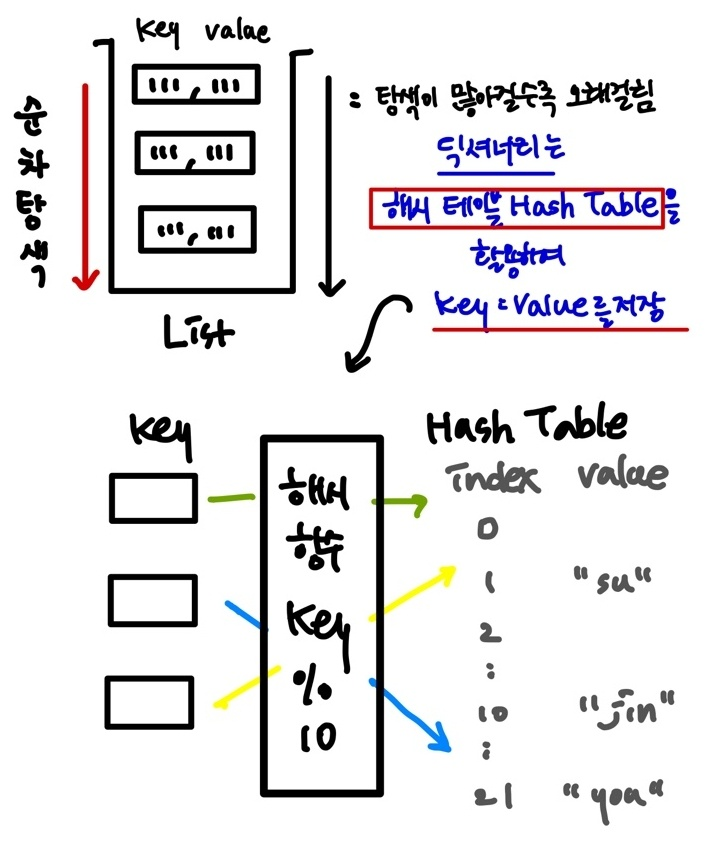 Key value
"" , ""
"" , ""
"" , ""
순차탐색
List
: 탐색이 많아질수록 오래걸림
딕셔너리는
해시 테이블 Hash Table을
활용하여
Key : Value를 저장
Key
해시
함수
Key
%
10
Hash Table
index value
0
1 "su"
2
:
10 "jin"
:
21 "you"